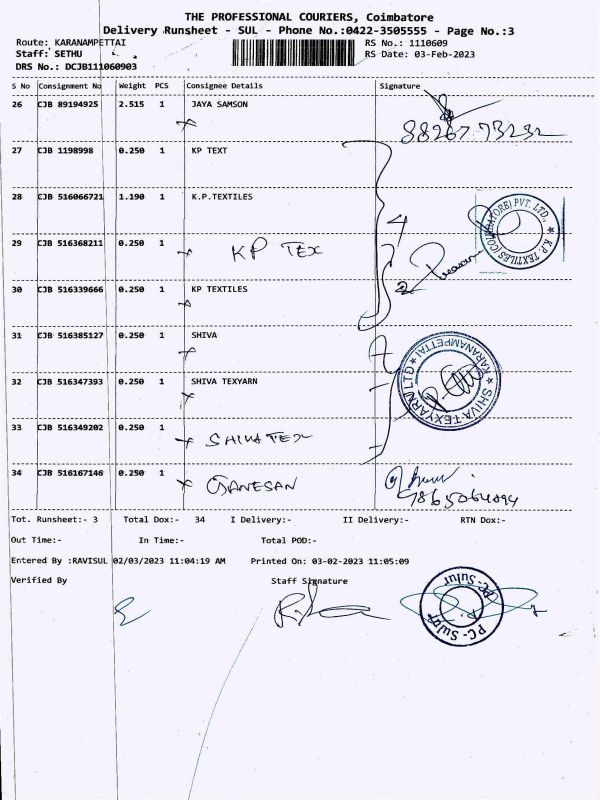 THE PROFESSIONAL COURIERS, Coimbatore
Delivery Runsheet - SUL - Phone No.:0422-3505555 - Page No.:3
Route: KARANAMPETTAI RS No.: 1110609
Staff: SETHU RS Date: 03-Feb-2023
DRS No.: DCJB111060903
S No Consignment No Weight PCS Consignee Details Signature
26 CJB 89194925 2.515 1 JAYA SAMSON
27 CJB 1198998 0.250 1 KP TEXT
28 CJB 516066721 1.190 1 K.P.TEXTILES
4
K.P. TEXTILES (COIMBATORE) PVT. LTD.,
29 CJB 516368211 0.250 1 KP TEX
30 CJB 516339666 0.250 1 KP TEXTILES
31 CJB 516385127 0.250 1 SHIVA
32 CJB 516347393 0.250 1 SHIVA TEXYARN
SHIVA TEXYARN LTD KARANAMPETTAI
33 CJB 516349202 0.250 1 SHIVA TEX
34 CJB 516167146 0.250 1 GANESAN
Tot. Runsheet:- 3 Total Dox:- 34 I Delivery:- II Delivery:- RTN Dox:-
Out Time:- In Time:- Total POD:-
Entered By :RAVISUL 02/03/2023 11:04:19 AM Printed On: 03-02-2023 11:05:09
Verified By Staff Signature
PC-Sulur
PC-Sulur